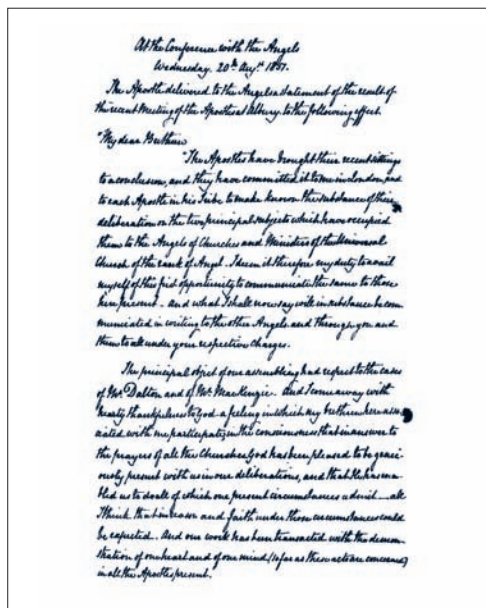 At the Conference with the Angels
Wednesday. 20th Augst. 1851.
The Apostle delivered to the Angels a statement of the result of
the recent Meeting of the Apostles at Albury to the following effect.
"My dear Brethren
"The Apostles have brought their recent sittings
to a conclusion, and they have committed it to me in London, and
to each Apostle in his Tribe to make known the substance of their
deliberation on the two principal subjects which have occupied
them to the Angels of Churches and Ministers of the Universal
Church of the rank of Angel. I deem it therefore my duty to avail
myself of this first opportunity to communicate the same to those
here present. And what I shall now say will in substance be com
municated in writing to the other Angels and through you and
them to all under your respective charges.
The principal object of our assembling had respect to the cases
of Mr. Dalton and of Mr. MacKenzie. And I come away with
hearty thankfulness to God a feeling in which my brethren here asso
ciated with me participate, in the consciousness that in answer to
the prayers of all the Churches God has been pleased to be graci
ously present with us in our deliberations, and that He has ena
bled us to do all of which our present circumstances admit ― all
I think that in reason and faith under those circumstances could
be expected. And our work has been transacted with the demon
stration of one heart and of one mind (so far as these acts are concerned)
in all the Apostles present.